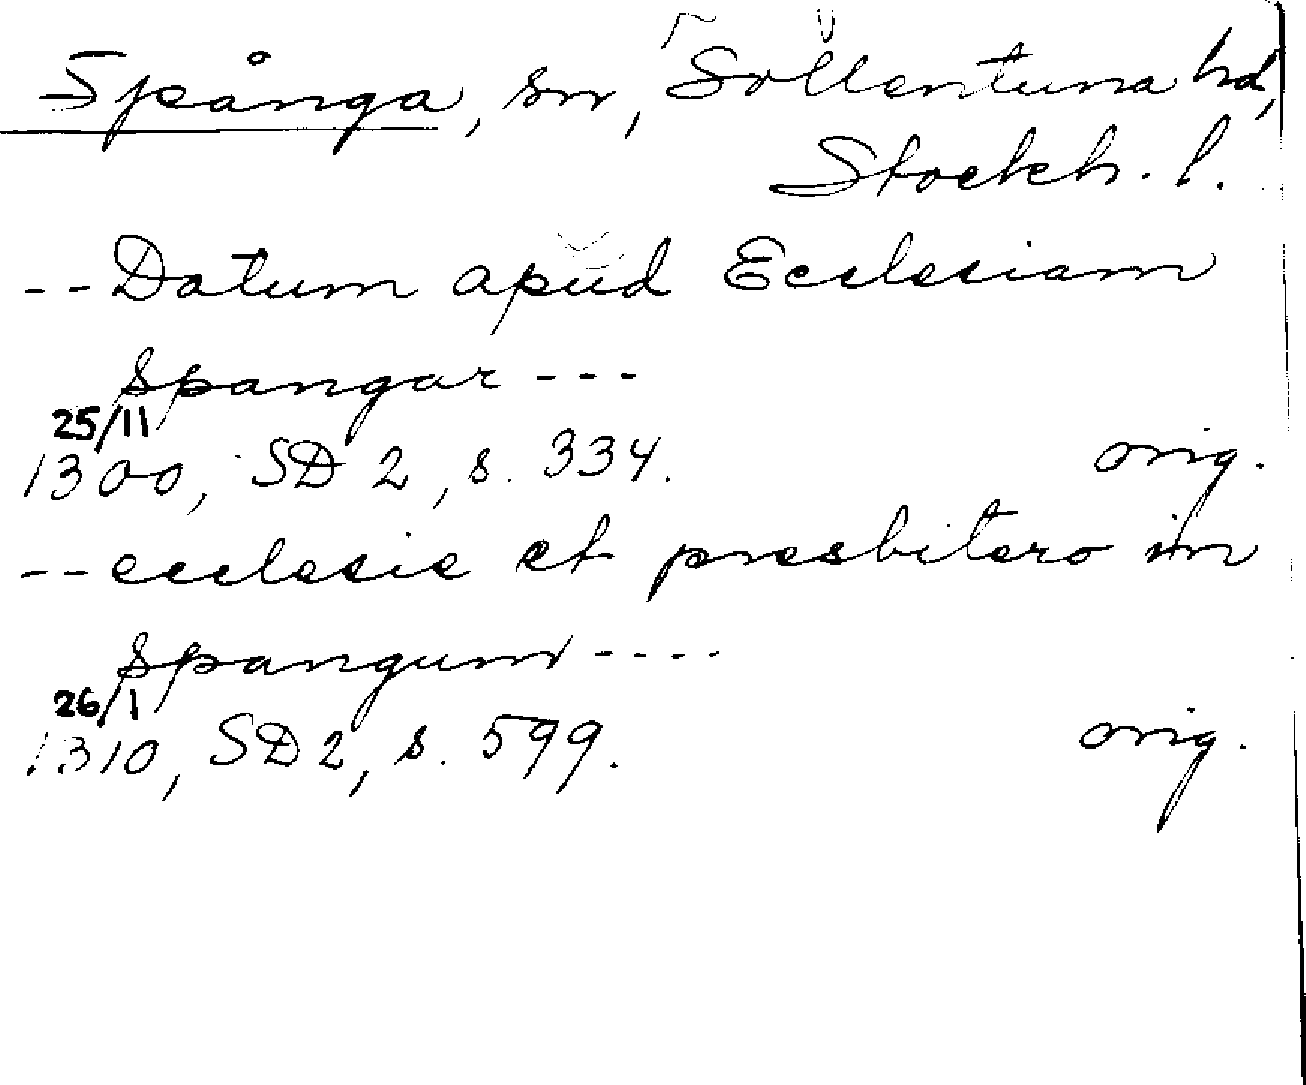 Spånga, sn, Sollentuna hd,
Stockh. l.
-- Datum apud Ecclesiam
spangar ---
25/11
1300, SD 2, s. 334. orig.
-- ecclesie et presbitero in
spangum ----
26/1
1310, SD 2, s. 599. orig.